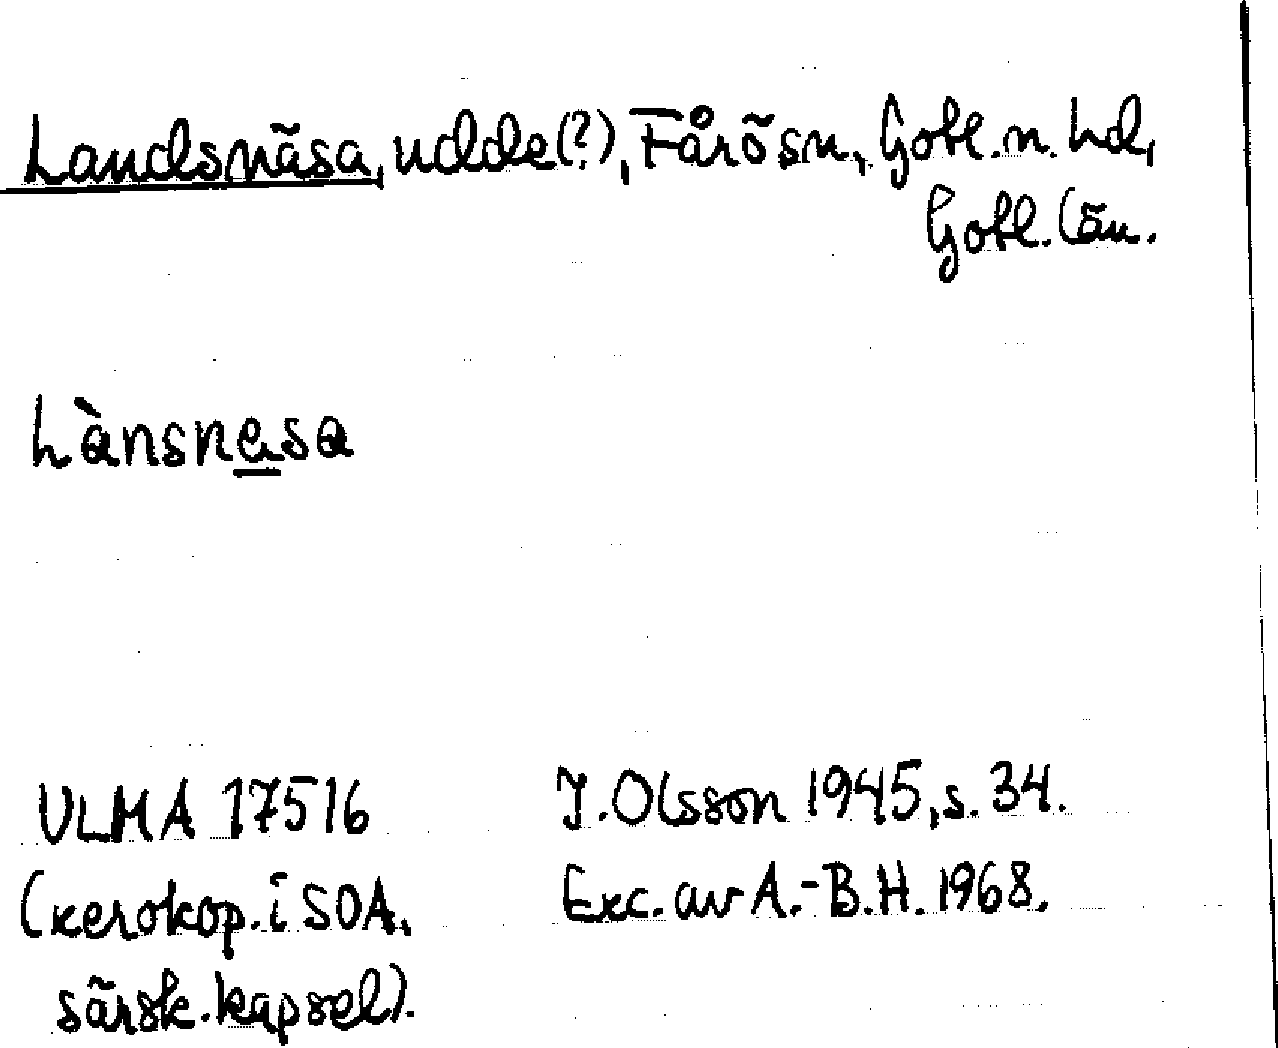 Landsnäsa, udde(?), Fårö sn, Gotl. n. hd,
Gotl. län.
Lànsnesa
ULMA 17516
(xerokop. i SOA.
särsk. kapsel).
I. Olsson 1945, s. 34.
Exc. av A.-B.H. 1968.